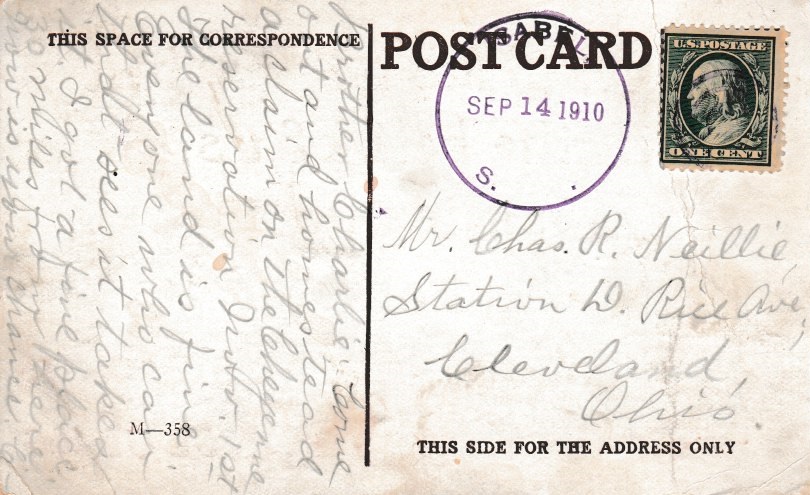 THIS SPACE FOR CORRESPONDENCE
Brother Charlie: Come
out and homestead
a claim on the Cheyenne
reservation Nov. 1st
The land is fine.
Everyone who can
sees it takes
it I got a fine place
20 miles from here
Now is your chance
M—358
POST CARD
ISABEL
SEP 14 1910
S. .
U.S. POSTAGE
ONE CENT
Mr. Chas. R. Neillie,
Station D. Rice Ave,
Cleveland,
Ohio.
THIS SIDE FOR THE ADDRESS ONLY